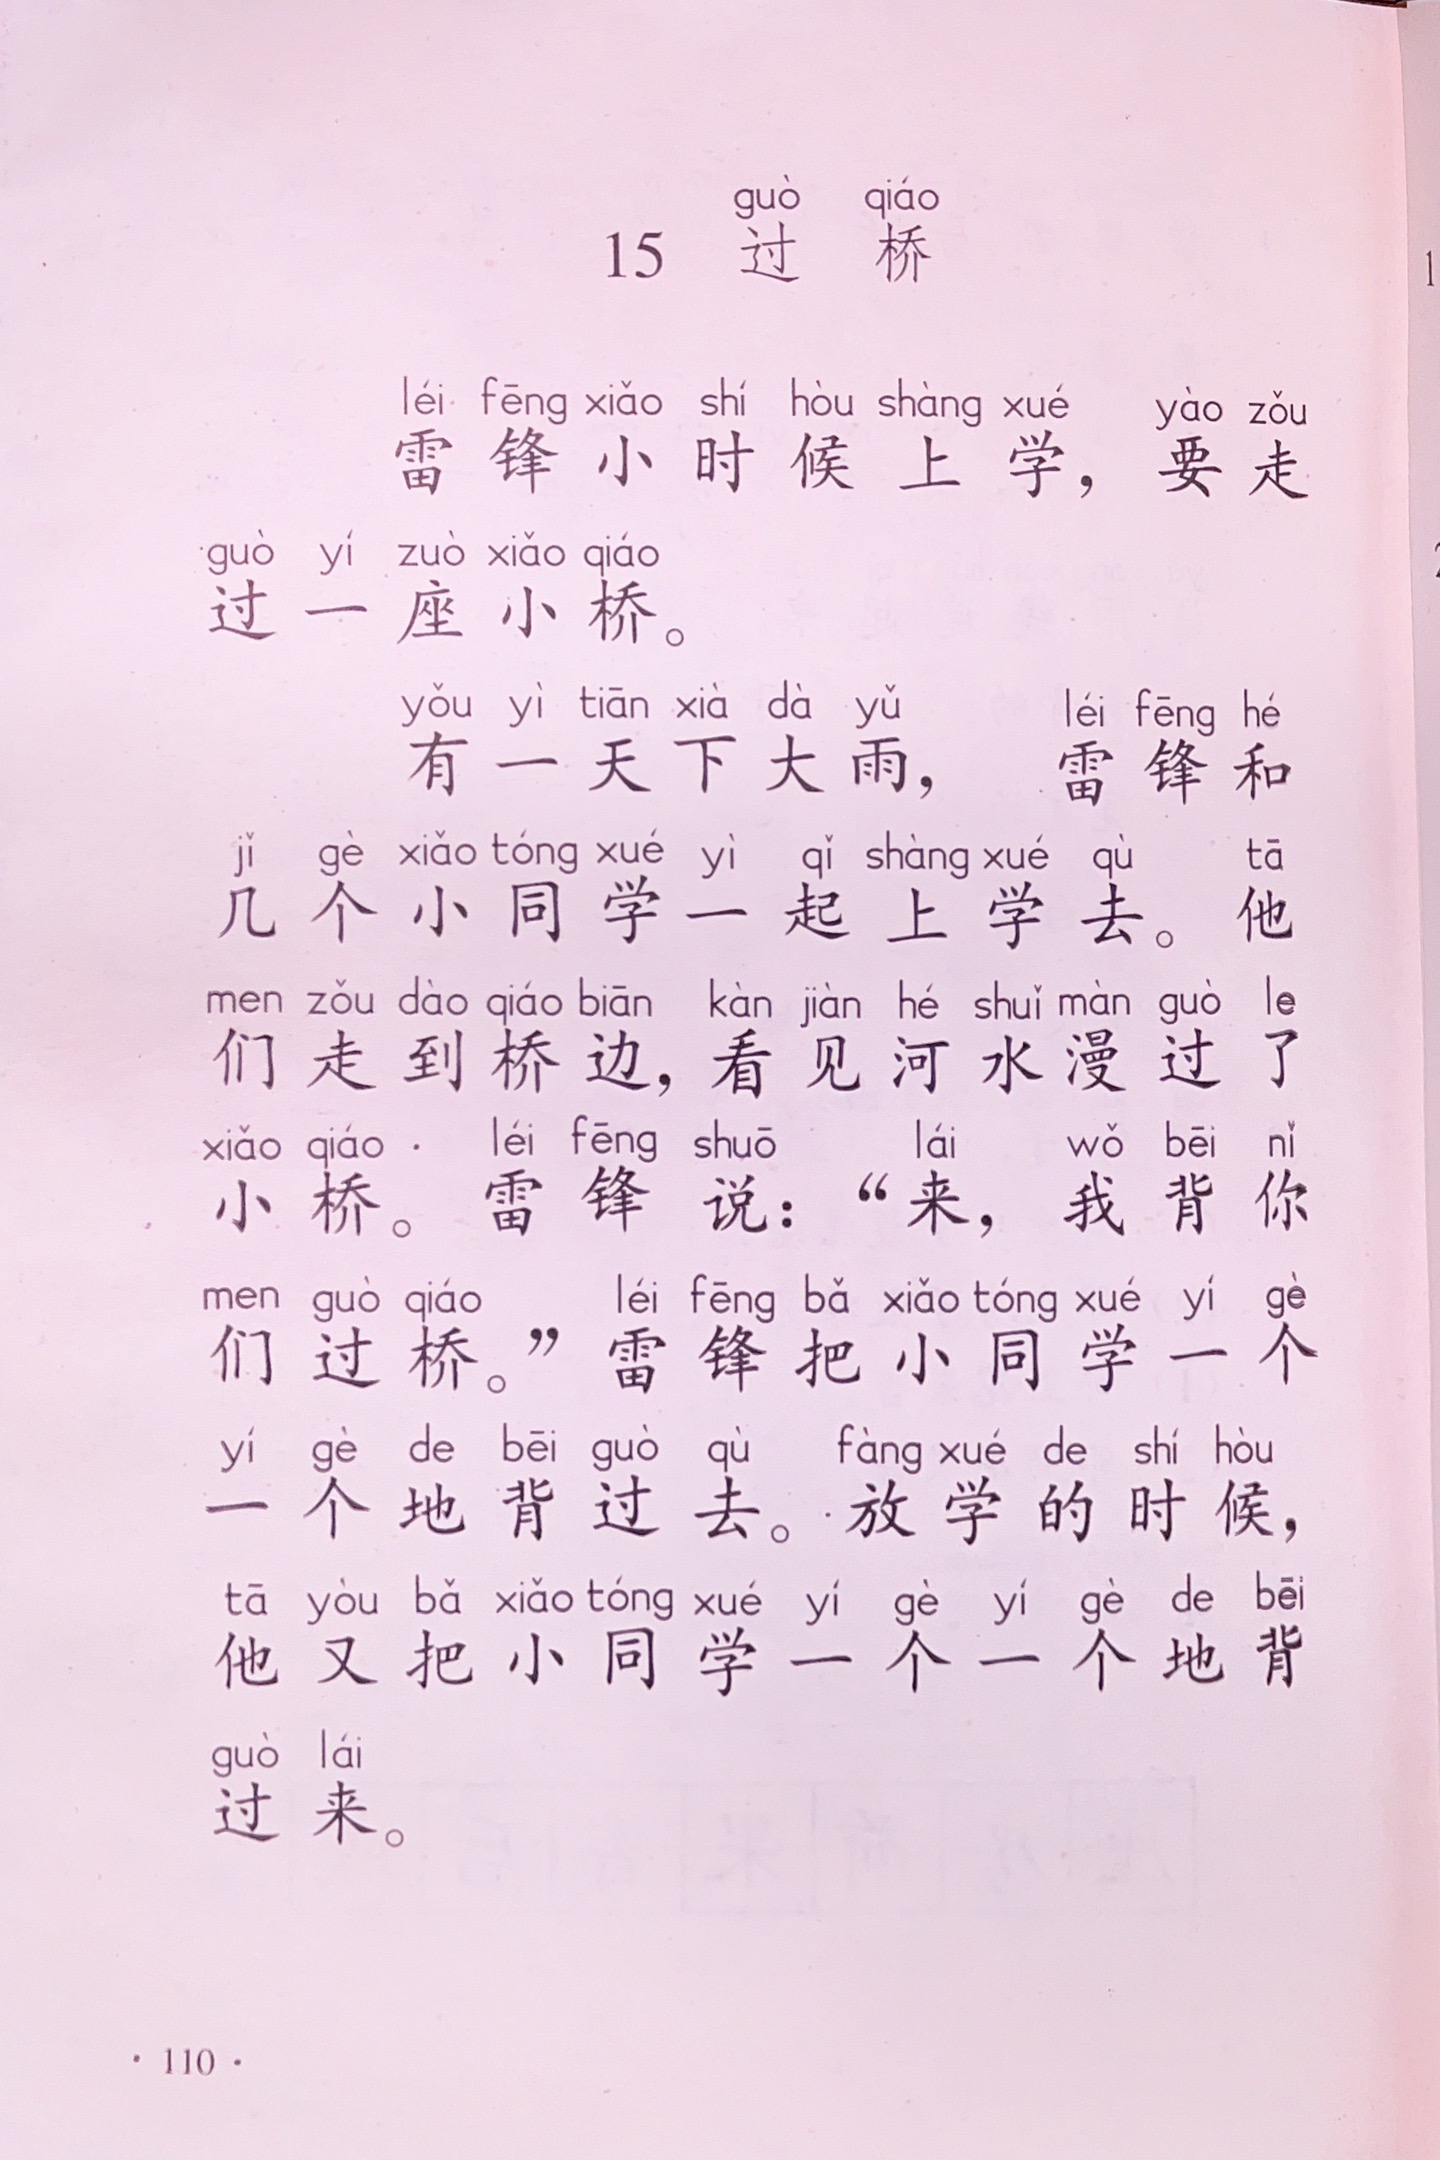 guò qiáo
15 过 桥
léi fēng xiǎo shí hòu shàng xué yào zǒu
雷锋小时候上学，要走
guò yí zuò xiǎo qiáo
过一座小桥。
yǒu yì tiān xià dà yǔ léi fēng hé
有一天下大雨，雷锋和
jǐ gè xiǎo tóng xué yì qǐ shàng xué qù tā
几个小同学一起上学去。他
men zǒu dào qiáo biān kàn jiàn hé shuǐ màn guò le
们走到桥边，看见河水漫过了
xiǎo qiáo léi fēng shuō lái wǒ bēi nǐ
小桥。雷锋说：“来，我背你
men guò qiáo léi fēng bǎ xiǎo tóng xué yí gè
们过桥。”雷锋把小同学一个
yí gè de bēi guò qù fàng xué de shí hòu
一个地背过去。放学的时候，
tā yòu bǎ xiǎo tóng xué yí gè yí gè de bēi
他又把小同学一个一个地背
guò lái
过来。
· 110 ·